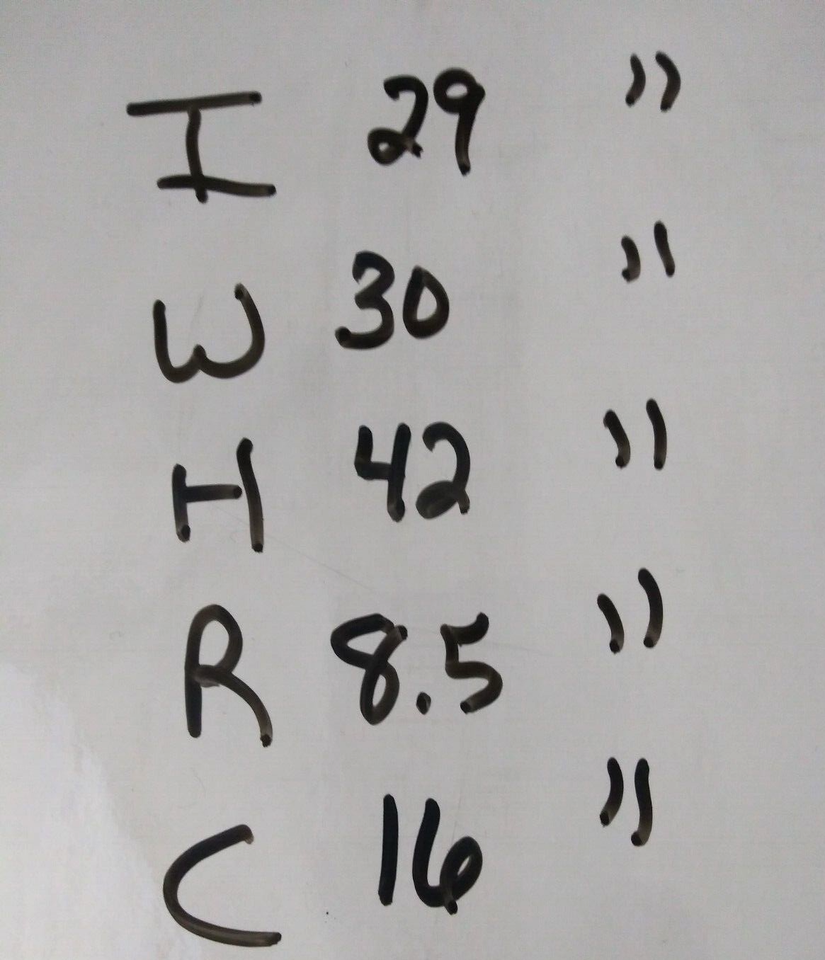 I 29 "
W 30 "
H 42 "
R 8.5 "
C 16 "